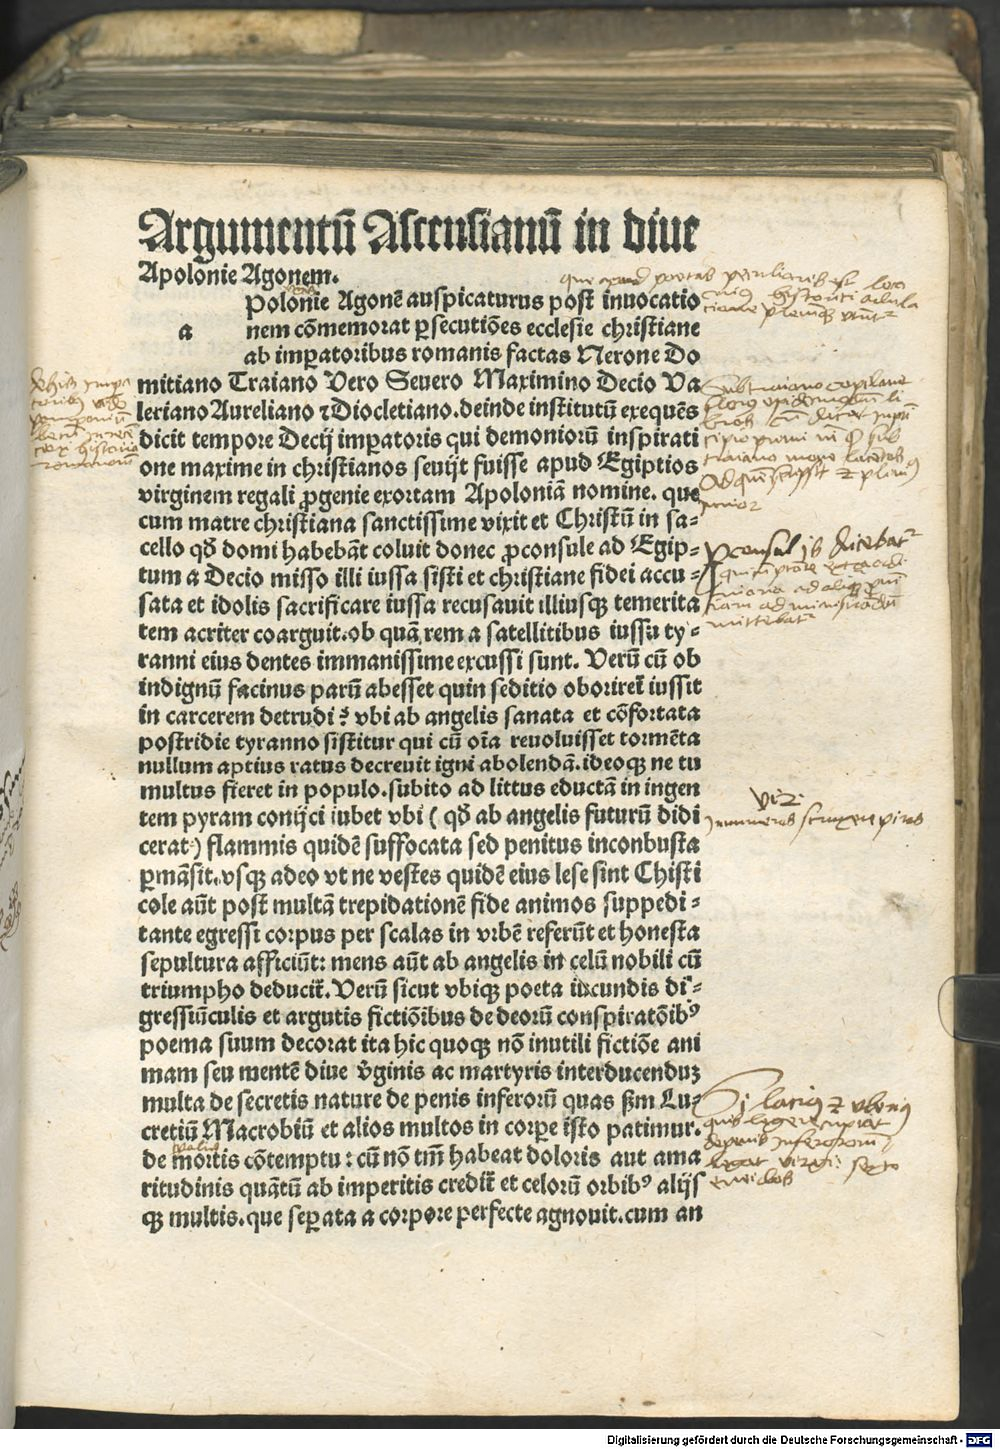 Argumentū Ascensianū in diue
Apolonie Agonem.
a
Polonie Agonē auspicaturus post inuocatio
nem cōmemorat ꝑsecutiōes ecclesie christiane
ab imꝑatoribus romanis factas Nerone Do
mitiano Traiano Vero Seuero Maximino Decio Va
leriano Aureliano ⁊ Diocletiano. deinde institutū exequēs
dicit tempore Decij imꝑatoris qui demoniorū inspirati
one maxime in christianos seuijt fuisse apud Egiptios
virginem regali ꝓgenie exortam Apoloniā nomine. que
cum matre christiana sanctissime vixit et Christū in sa⸗
cello qđ domi habebāt coluit donec ꝓconsule ad Egip⸗
tum a Decio misso illi iussa sisti et christiane fidei accu⸗
sata et idolis sacrificare iussa recusauit illiusqꝫ temerita
tem acriter coarguit. ob quā rem a satellitibus iussu ty⸗
ranni eius dentes immanissime excussi sunt. Verū cū ob
indignū facinus parū abesset quin seditio oboriret̄ iussit
in carcerem detrudi? vbi ab angelis sanata et cōfortata
postridie tyranno sistitur qui cū oīa reuoluisset tormēta
nullum aptius ratus decreuit igni abolendā. ideoqꝫ ne tu
multus fieret in populo. subito ad littus eductā in ingen
tem pyram conijci iubet vbi ( qđ ab angelis futurū didi
cerat) flammis quidē suffocata sed penitus inconbusta
ꝑmāsit. vsqꝫ adeo vt ne vestes quidē eius lese sint Christi
cole aūt post multā trepidationē fide animos suppedi⸗
tante egressi corpus per scalas in vrbē referūt et honesta
sepultura afficiūt: mens aūt ab angelis in celū nobili cū
triumpho deducit̄. Verū sicut vbiqꝫ poeta iucundis di⸗
gressiūculis et argutis fictiōibus de deorū conspiratōibꝰ
poema suum decorat ita hic quoqꝫ nō inutili fictiōe ani
mam seu mentē diue v̄ginis ac martyris interducenduꝫ
multa de secretis nature de penis inferorū quas ẜm Lu⸗
cretiū Macrobiū et alios multos in corꝑe isto patimur.
de mortis cōtemptu: cū nō tm̄ habeat doloris aut ama
ritudinis quātū ab imperitis credit̄ et celorū orbibꝰ alijs
qꝫ multis. que seꝑata a corpore perfecte agnouit. cum an
Digitalisierung gefördert durch die Deutsche Forschungsgemeinschaft - DFG